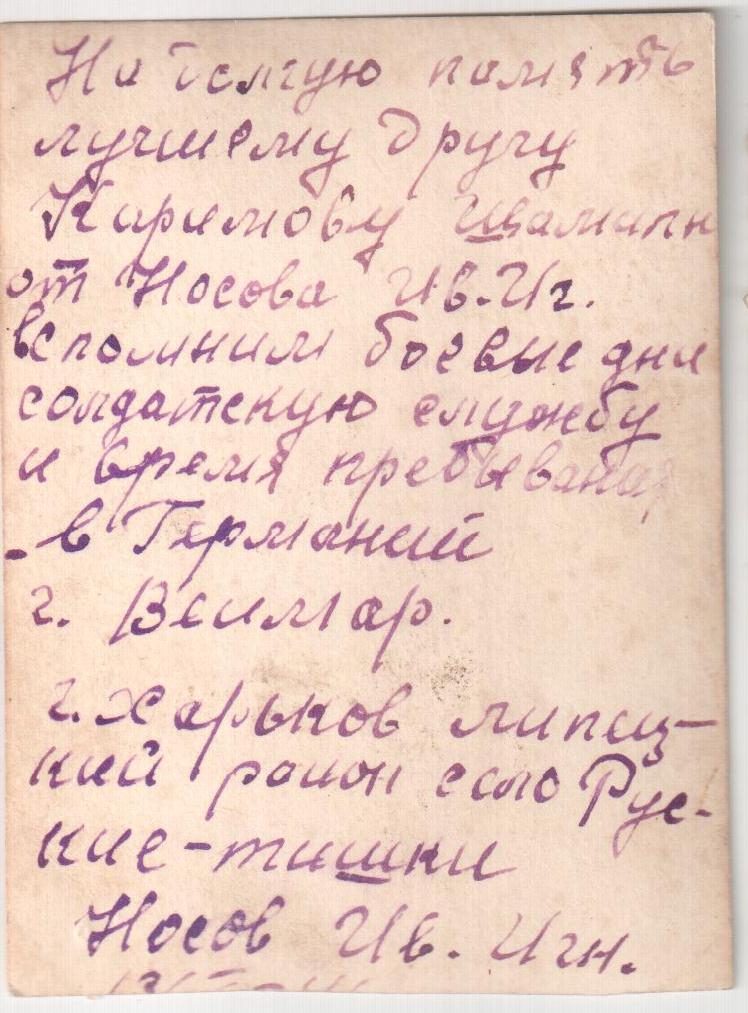 На долгую память
лучшему другу
Каримову
от Носова Ив. Иг.
вспомним боевые дни
солдатскую службу
и время пребывания
в Германий
г. Веимар.
г. Харьков липец-
кий район село Рус-
кие-тишки
Носов Ив. Игн.